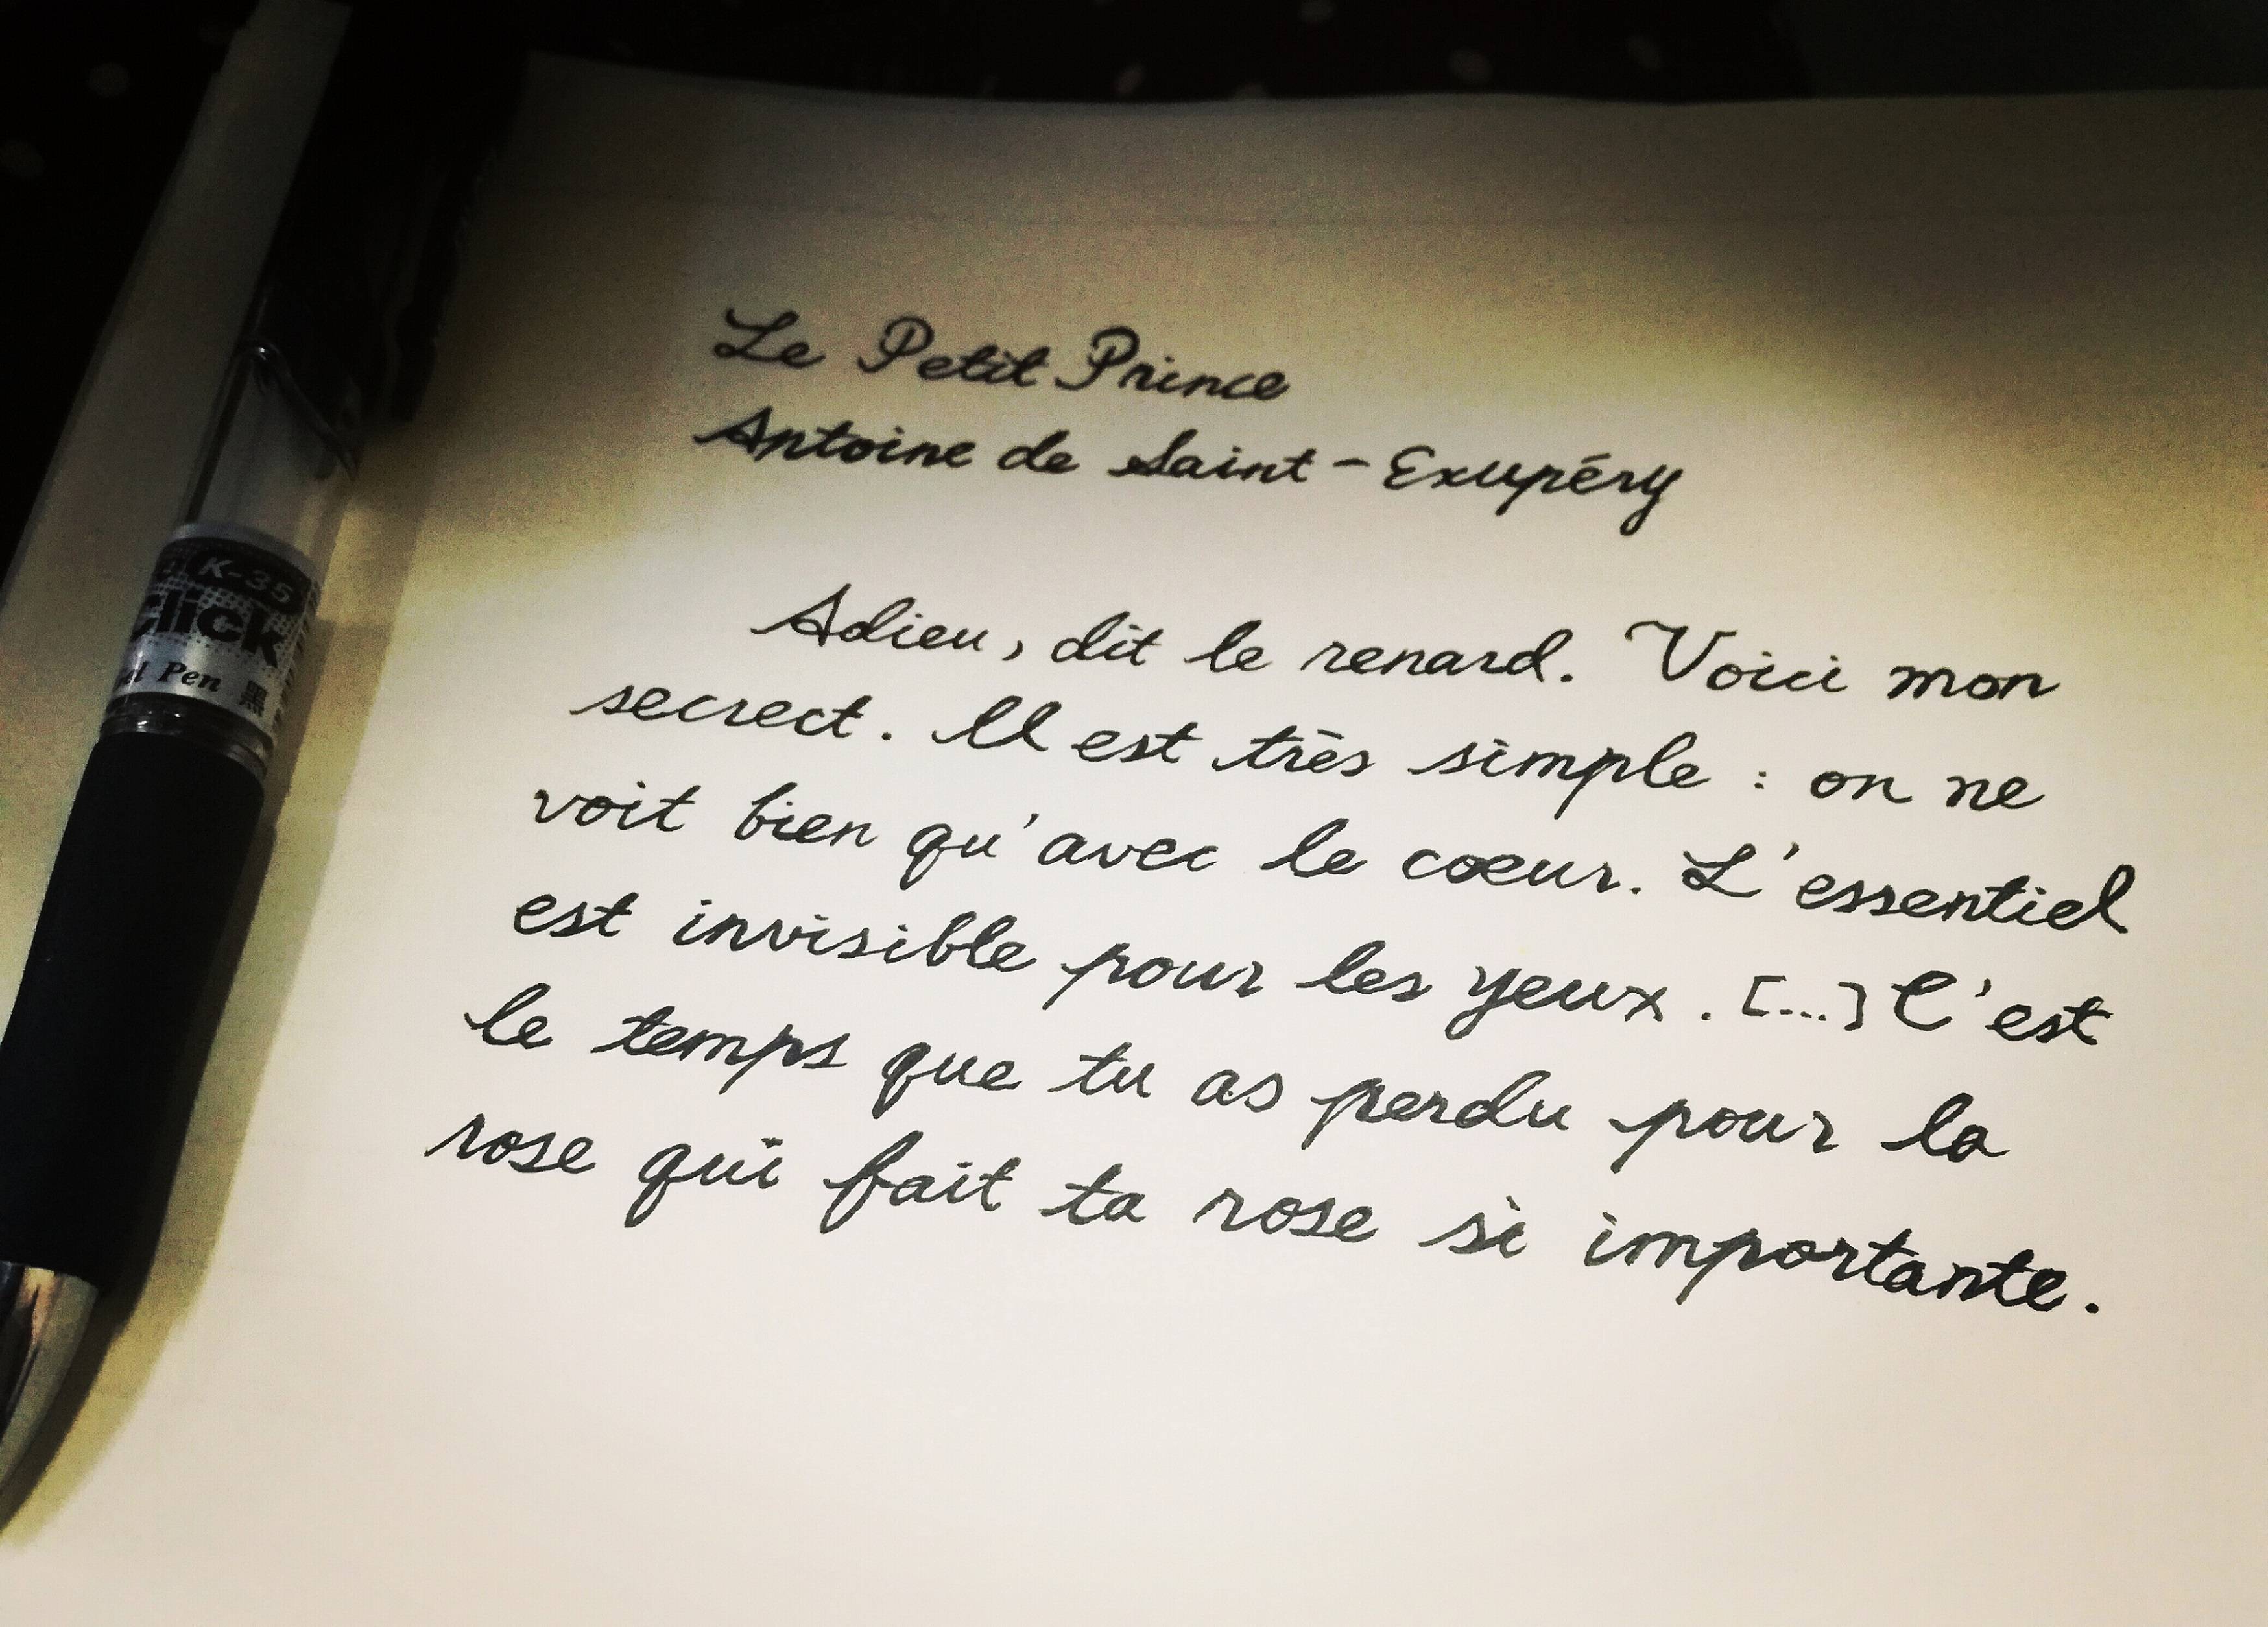 Le Petit Prince
Antoine de Saint-Exupéry
Adieu, dit le renard. Voici mon
secrect. Il est très simple : on ne
voit bien qu'avec le cœur. L'essentiel
est invisible pour les yeux. [...] C'est
le temps que tu as perdu pour la
rose qui fait ta rose si importante.
K-35
Click
Pen 黒